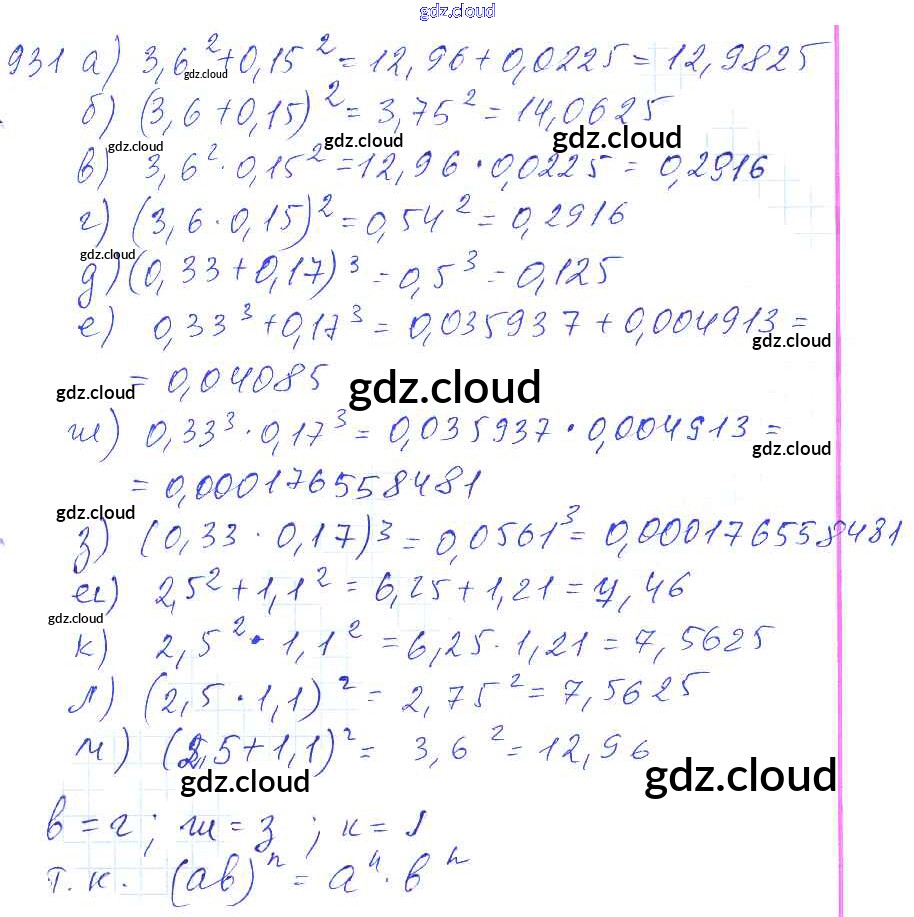 gdz.cloud
931 а) 3,6² + 0,15² = 12,96 + 0,0225 = 12,9825
gdz.cloud
б) (3,6 + 0,15)² = 3,75² = 14,0625
gdz.cloud gdz.cloud gdz.cloud
в) 3,6² · 0,15² = 12,96 · 0,0225 = 0,2916
г) (3,6 · 0,15)² = 0,54² = 0,2916
gdz.cloud
д) (0,33 + 0,17)³ = 0,5³ = 0,125
е) 0,33³ + 0,17³ = 0,035937 + 0,004913 =
gdz.cloud
= 0,04085
gdz.cloud gdz.cloud
ж) 0,33³ · 0,17³ = 0,035937 · 0,004913 =
gdz.cloud
= 0,000176558481
gdz.cloud
з) (0,33 · 0,17)³ = 0,0561³ = 0,000176558481
и) 2,5² + 1,1² = 6,25 + 1,21 = 7,46
gdz.cloud
к) 2,5² · 1,1² = 6,25 · 1,21 = 7,5625
л) (2,5 · 1,1)² = 2,75² = 7,5625
м) (2,5 + 1,1)² = 3,6² = 12,96
gdz.cloud gdz.cloud
в = г; ж = з; к = л
т.к. (ав)ⁿ = аⁿ · вⁿ